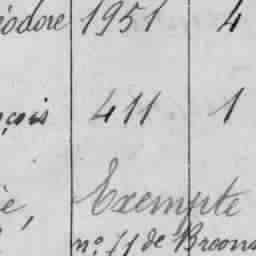 éodore 1951 4
çois 411 1
ie, Exempte
n° 11 de Broons